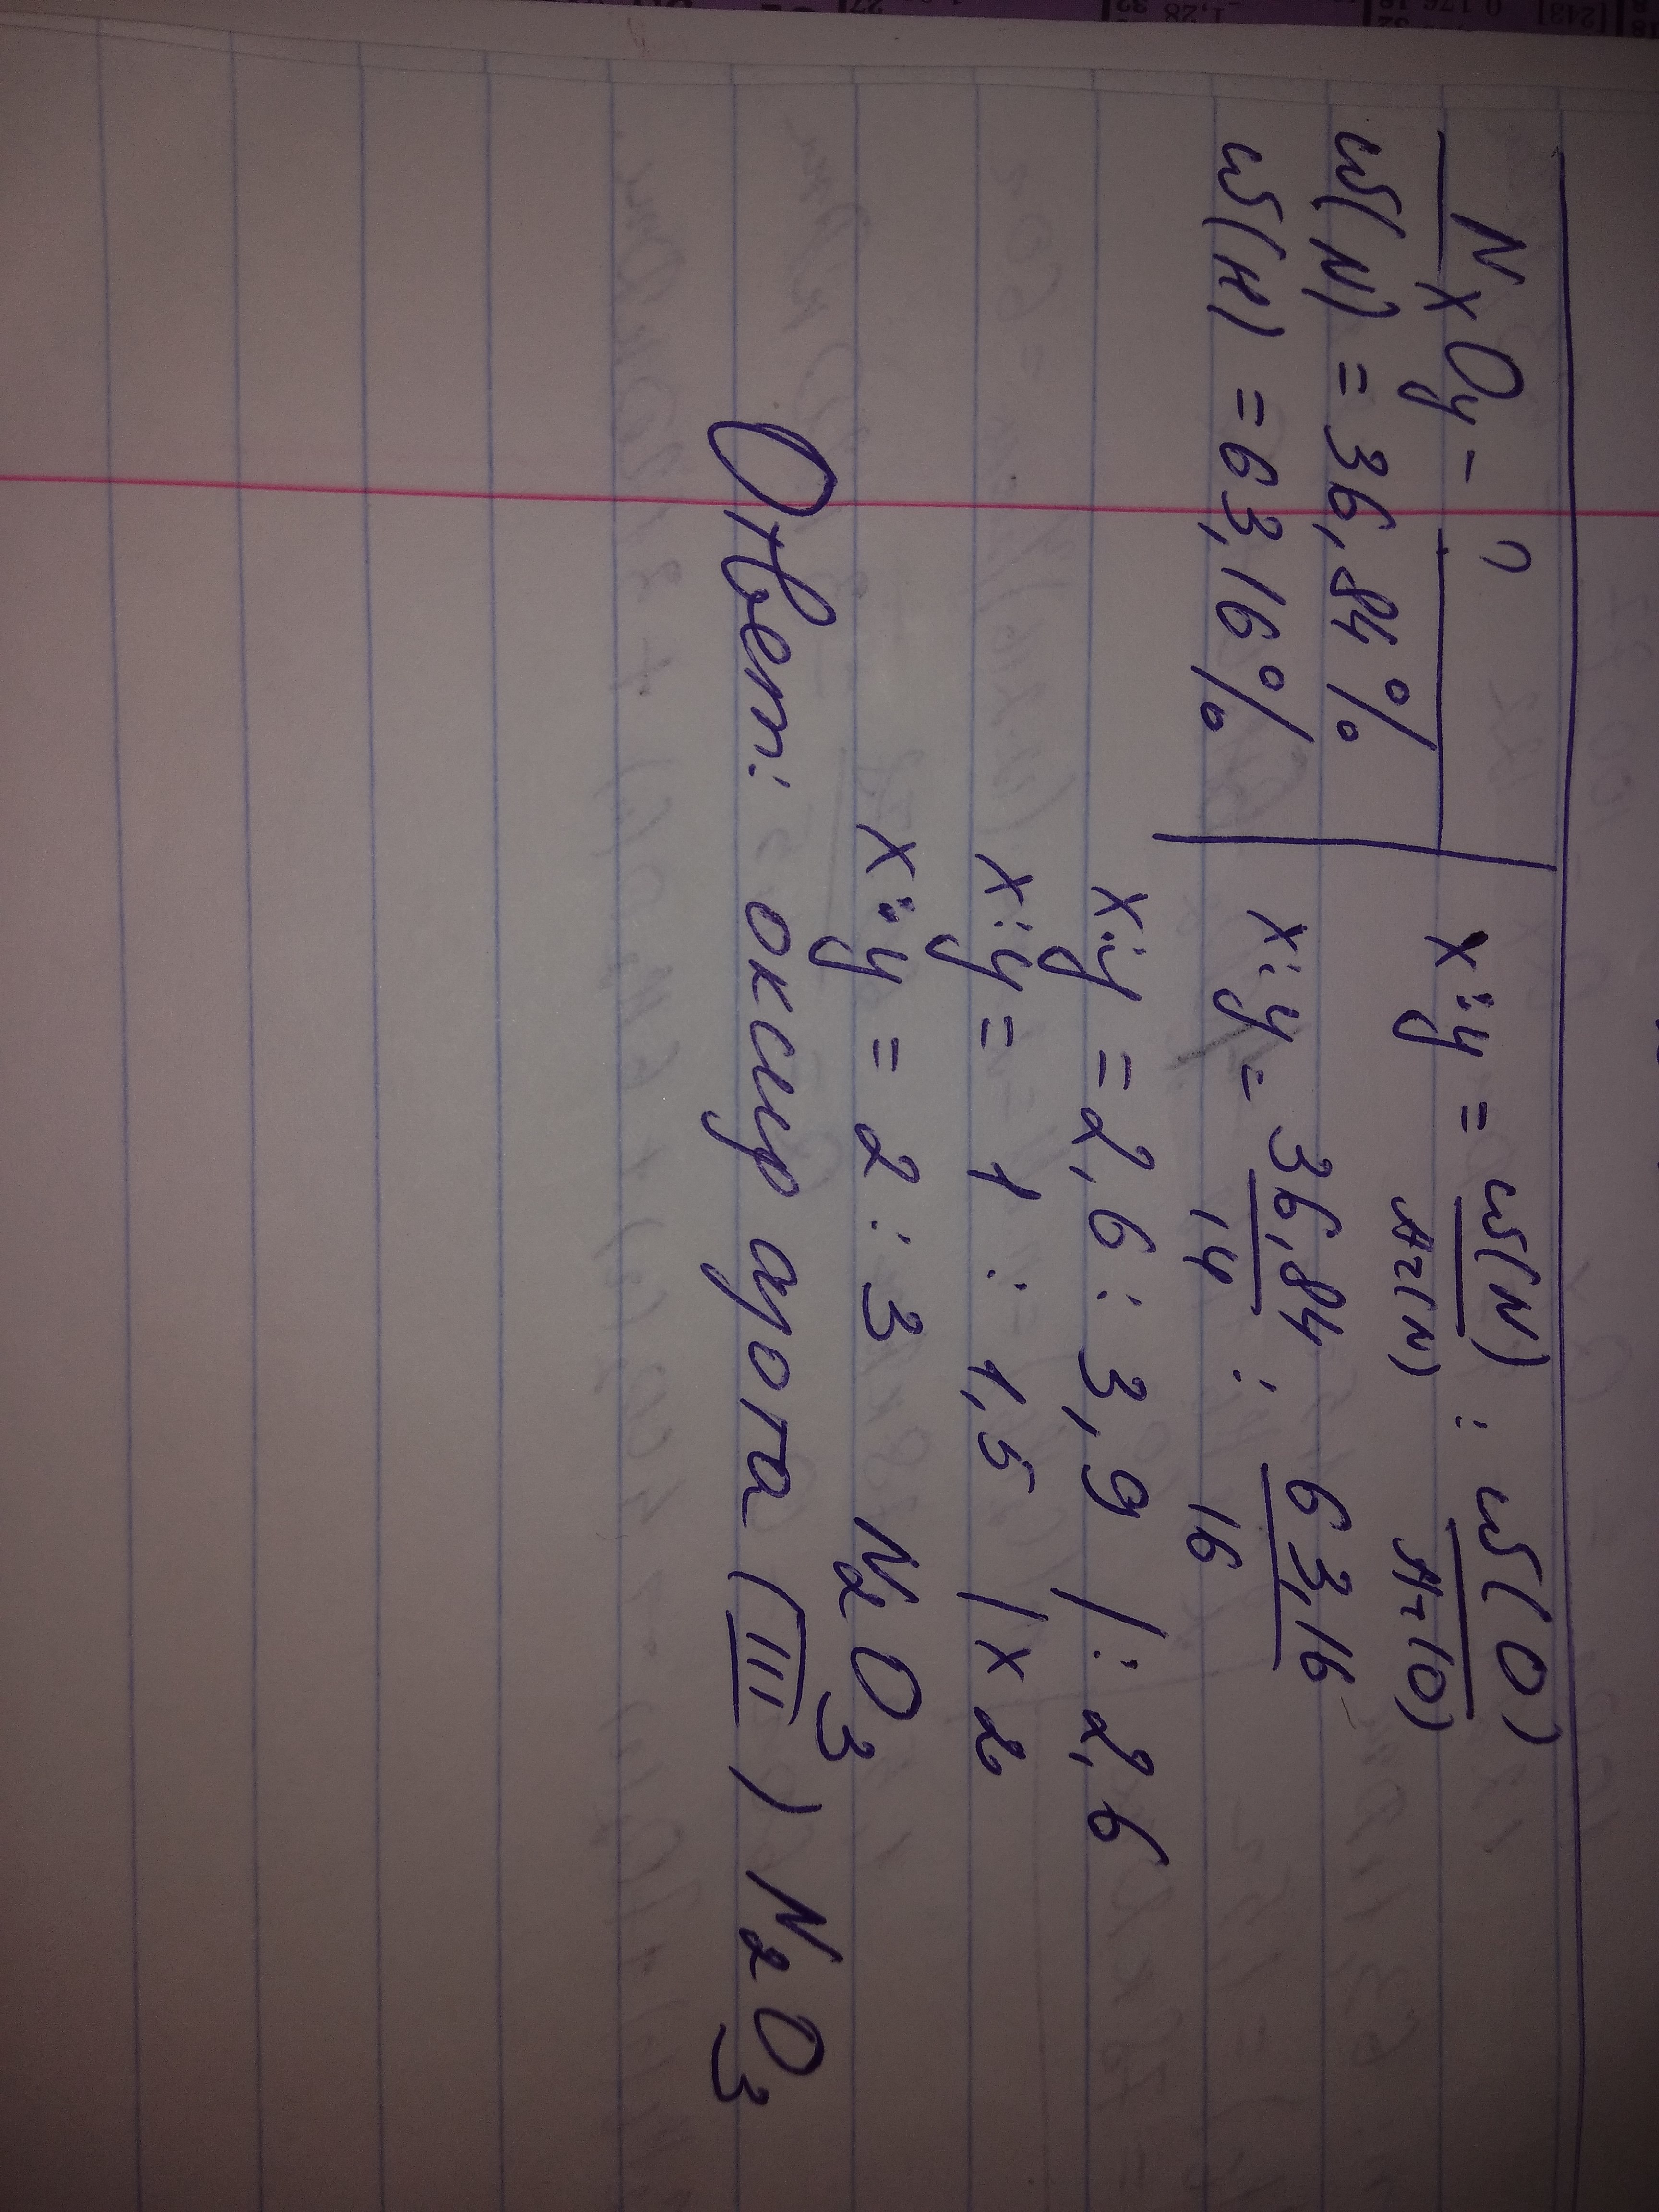 NxOy - ?
w(N) = 36,84%
w(H) = 63,16%
x:y = w(N)/Ar(N) : w(O)/Ar(O)
x:y = 36,84/14 : 63,16/16
x:y = 2,6 : 3,9 |: 2,6
x:y = 1 : 1,5 |x2
x:y = 2 : 3 N2O3
Ответ: оксид азота (III) N2O3